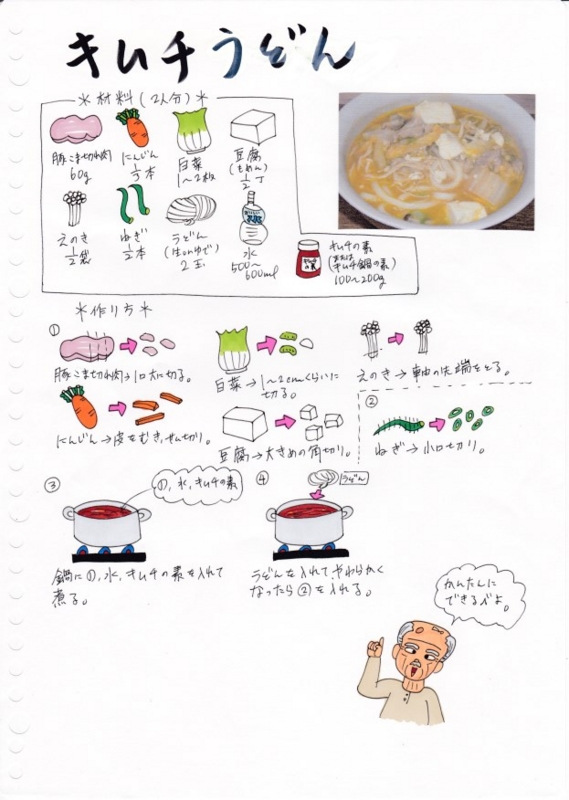 キムチうどん
＊材料(2人分)＊
豚こま切れ肉
60g
にんじん
1/3本
白菜
1〜2枚
豆腐
(もめん)
1/2丁
えのき
1/2袋
ねぎ
1/2本
うどん
(生orゆで)
2玉
水
500〜
600ml
キムチの素
キムチの素
(または
キムチ鍋の素)
100〜200g
＊作り方＊
①
豚こま切れ肉→1口大に切る。
白菜→1〜2cmくらいに
切る。
えのき→軸の先端をとる。
にんじん→皮をむき、せん切り。
豆腐→大きめの角切り。
②
ねぎ→小口切り。
③
①,水,キムチの素
鍋に①,水,キムチの素を入れて
煮る。
④
うどん
うどんを入れて、やわらかく
なったら②を入れる。
かんたんに
できるべよ。